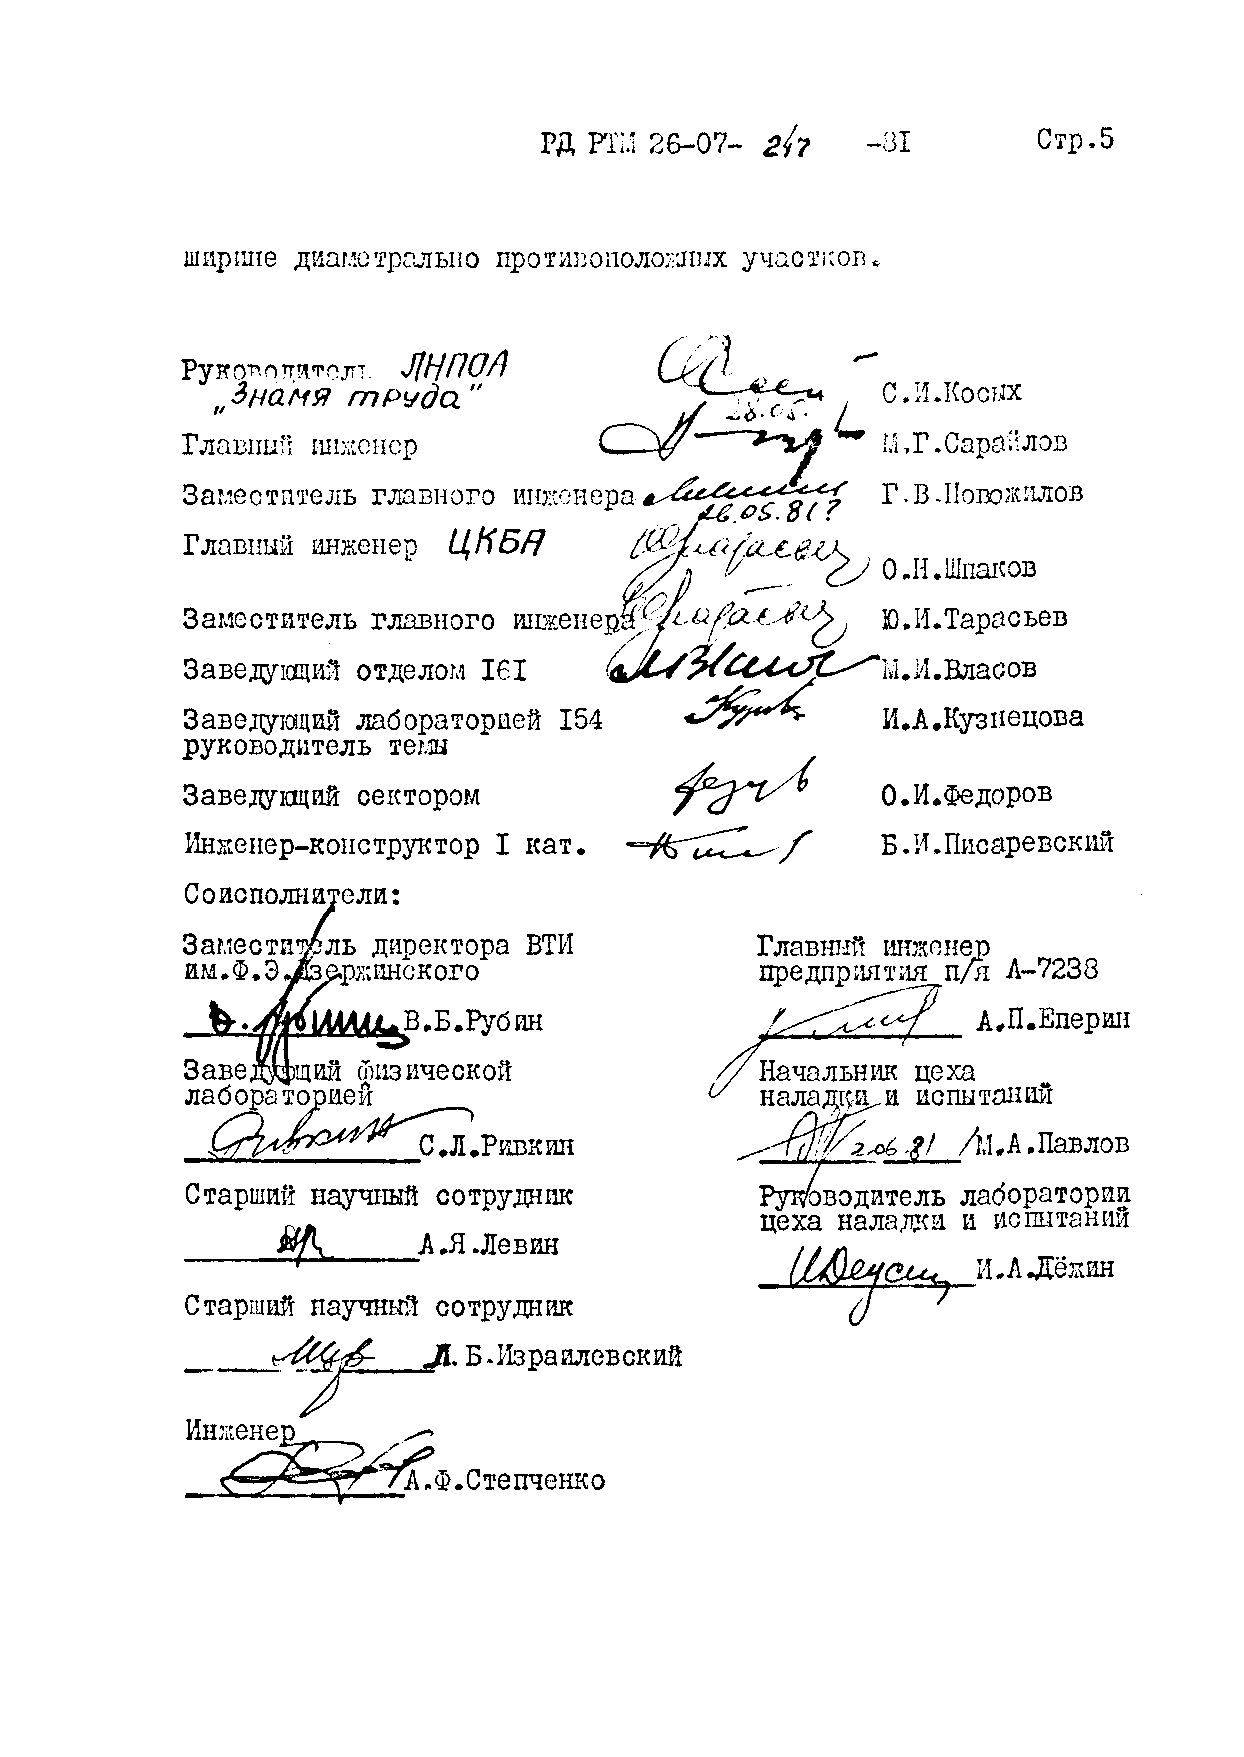 РД РТМ 26-07- 217 -81 Стр.5
ширине диаметрально противоположных участков.
Руководитель ЛНПОА
„Знамя труда" С.И.Косых
28.05.
Главный инженер М.Г.Сарайлов
Заместитель главного инженера Г.В.Новожилов
26.05.81?
Главный инженер ЦКБА
О.Н.Шпаков
Заместитель главного инженера Ю.И.Тарасьев
Заведующий отделом 161 М.И.Власов
Заведующий лабораторией 154 И.А.Кузнецова
руководитель темы
Заведующий сектором О.И.Федоров
Инженер-конструктор I кат. Б.И.Писаревский
Соисполнители:
Заместитель директора ВТИ
им.Ф.Э.Дзержинского
В.Б.Рубин
Заведующий физической
лабораторией
С.Л.Ривкин
Старший научный сотрудник
А.Я.Левин
Старший научный сотрудник
Л.Б.Израилевский
Инженер
А.Ф.Степченко
Главный инженер
предприятия п/я А-7238
А.П.Еперин
Начальник цеха
наладки и испытаний
2.06.81 /М.А.Павлов
Руководитель лаборатории
цеха наладки и испытаний
И.А.Дёжин